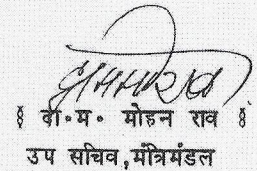 § वी॰म॰ मोहन राव §
उप सचिव,मंत्रिमंडल